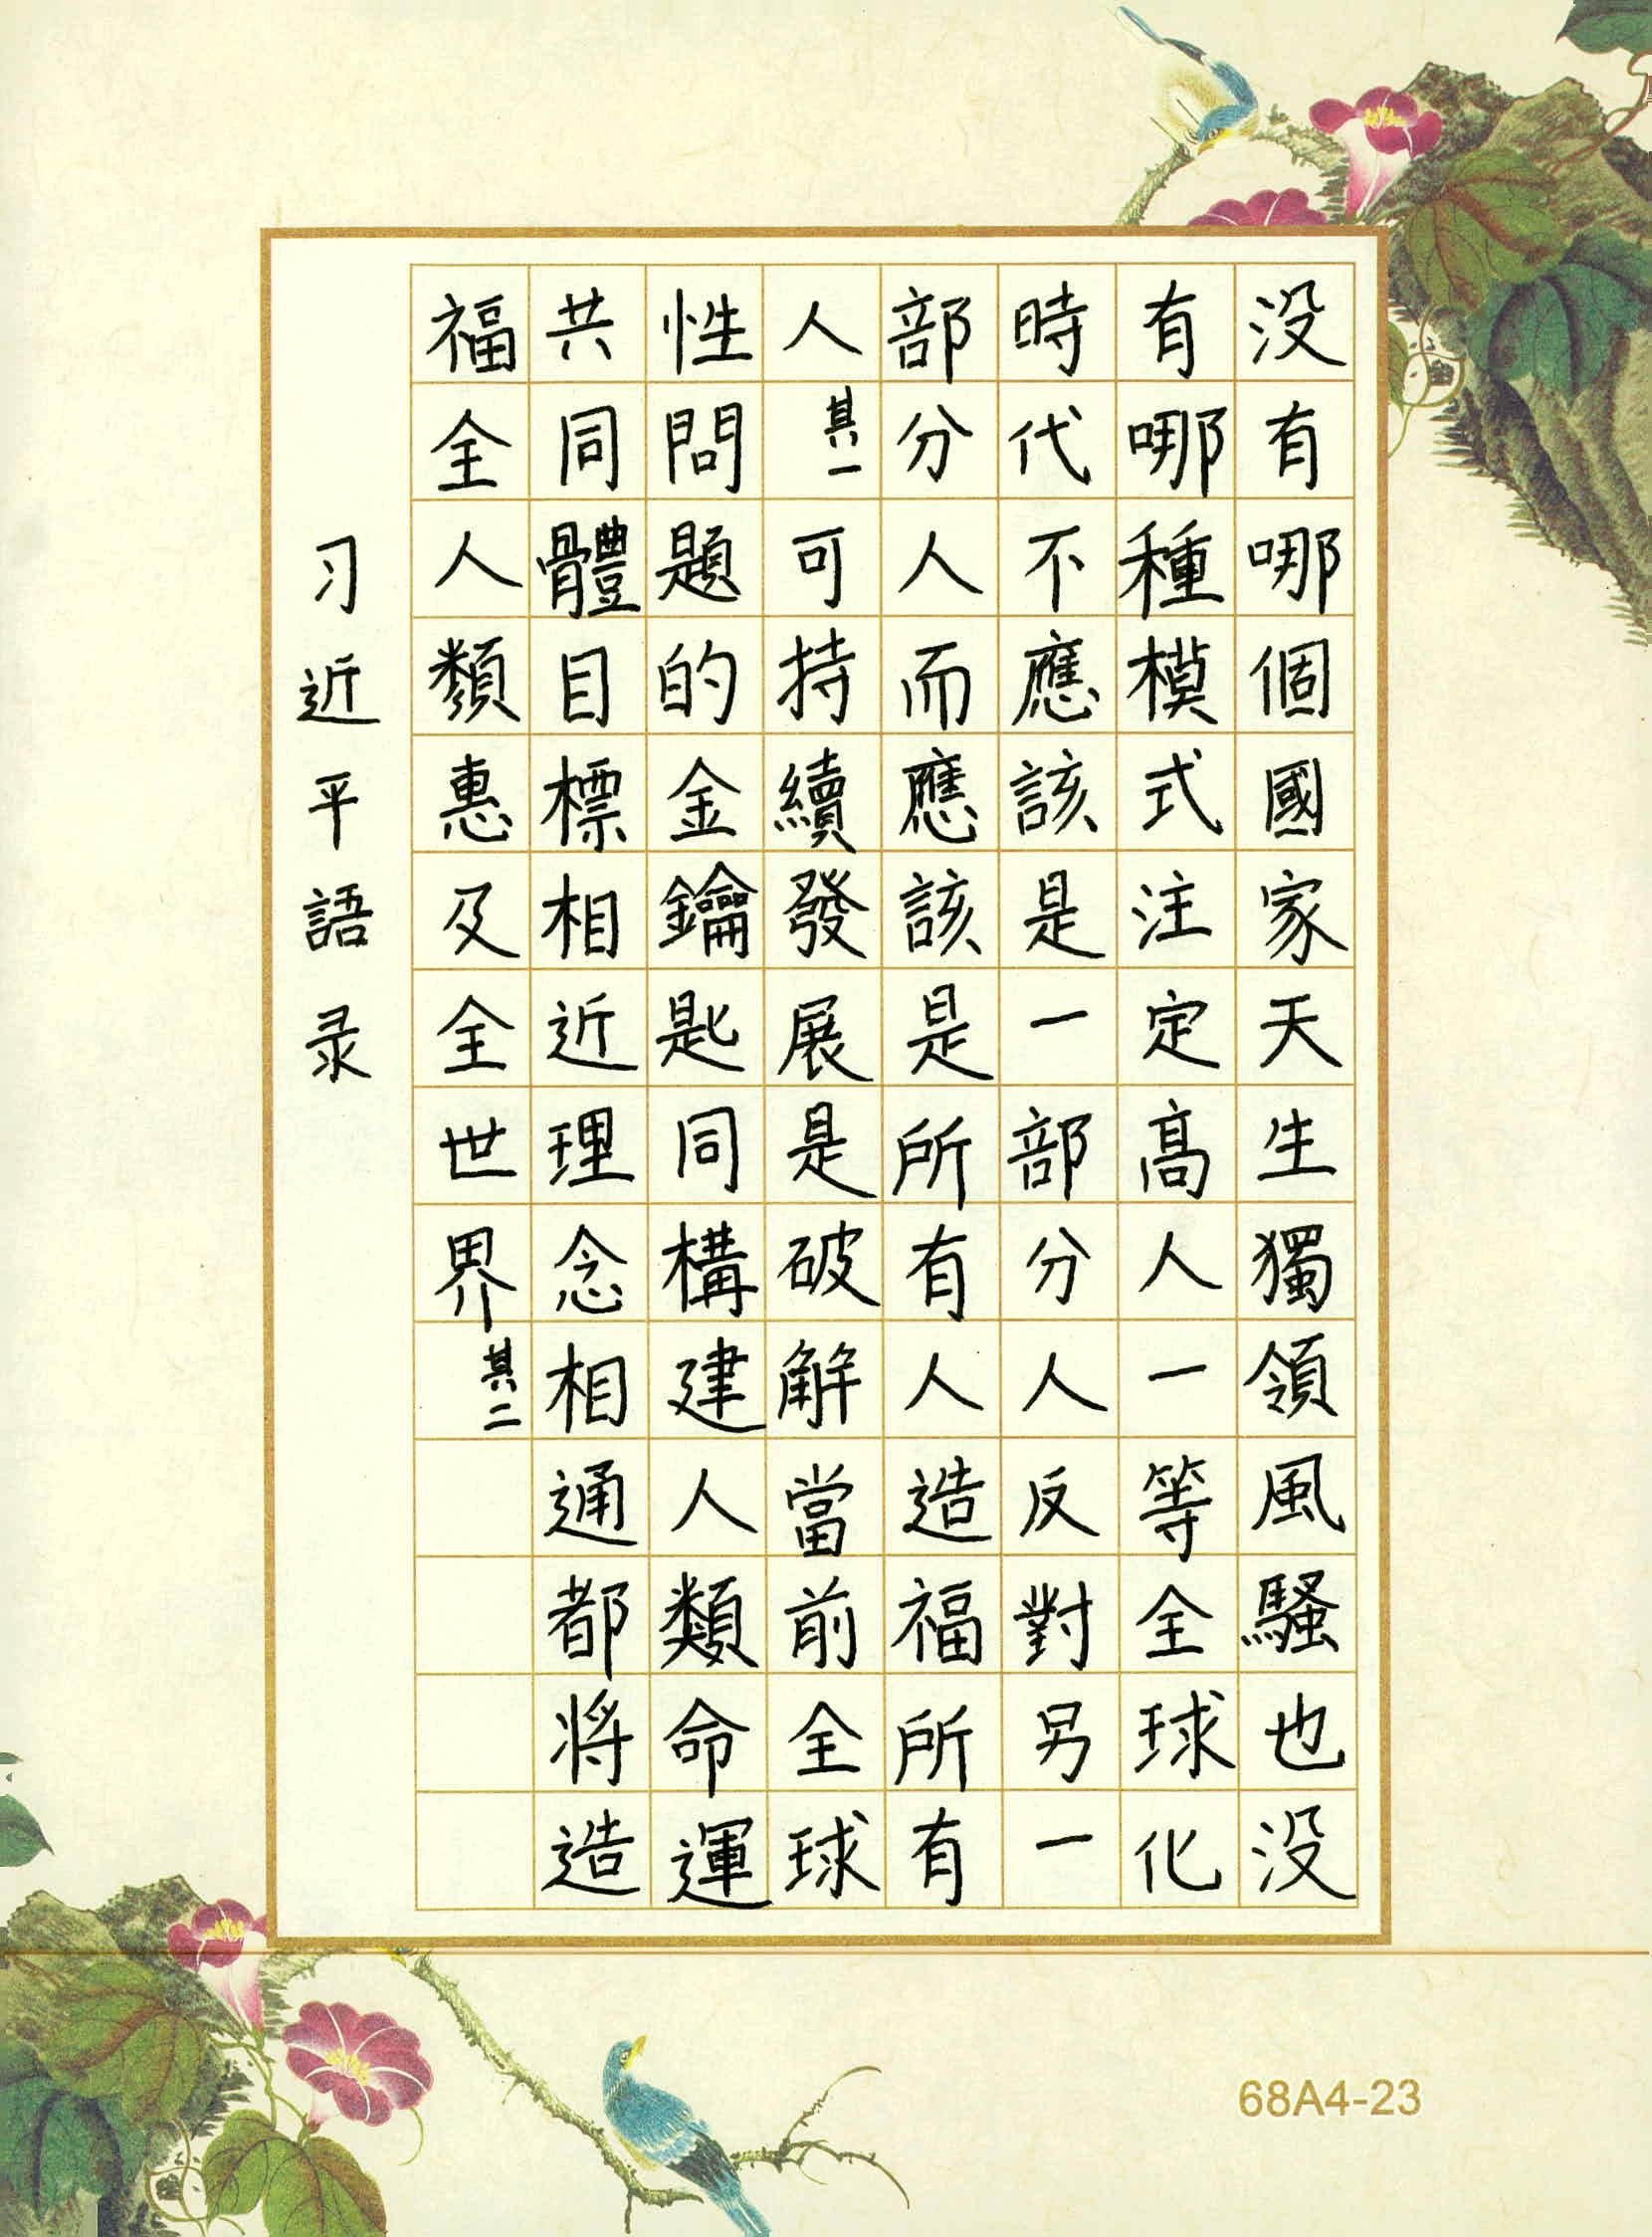 没有哪個國家天生獨領風騷也没
有哪種模式注定高人一等全球化
時代不應該是一部分人反對另一
部分人而應該是所有人造福所有
人其一可持續發展是破解當前全球
性問題的金鑰匙同構建人類命運
共同體目標相近理念相通都将造
福全人類惠及全世界其二
习近平語录
68A4-23